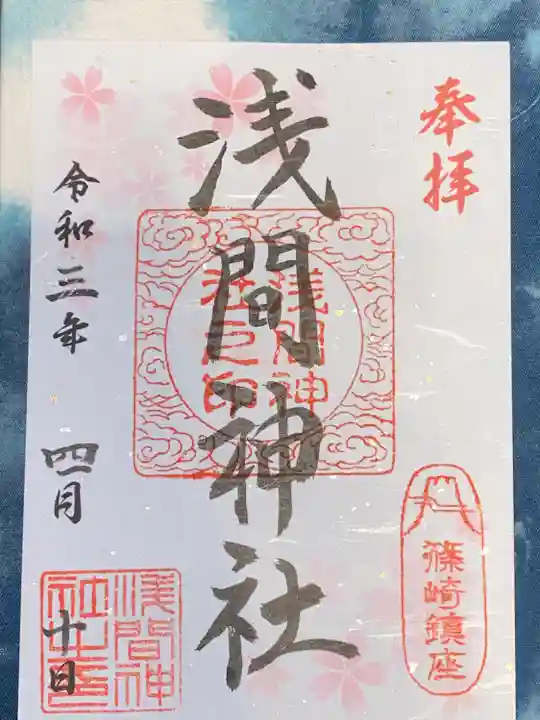 奉拝
篠崎鎮座
浅間神社
浅間神
社之印
令和三年 四月 十日
浅間神
社之印